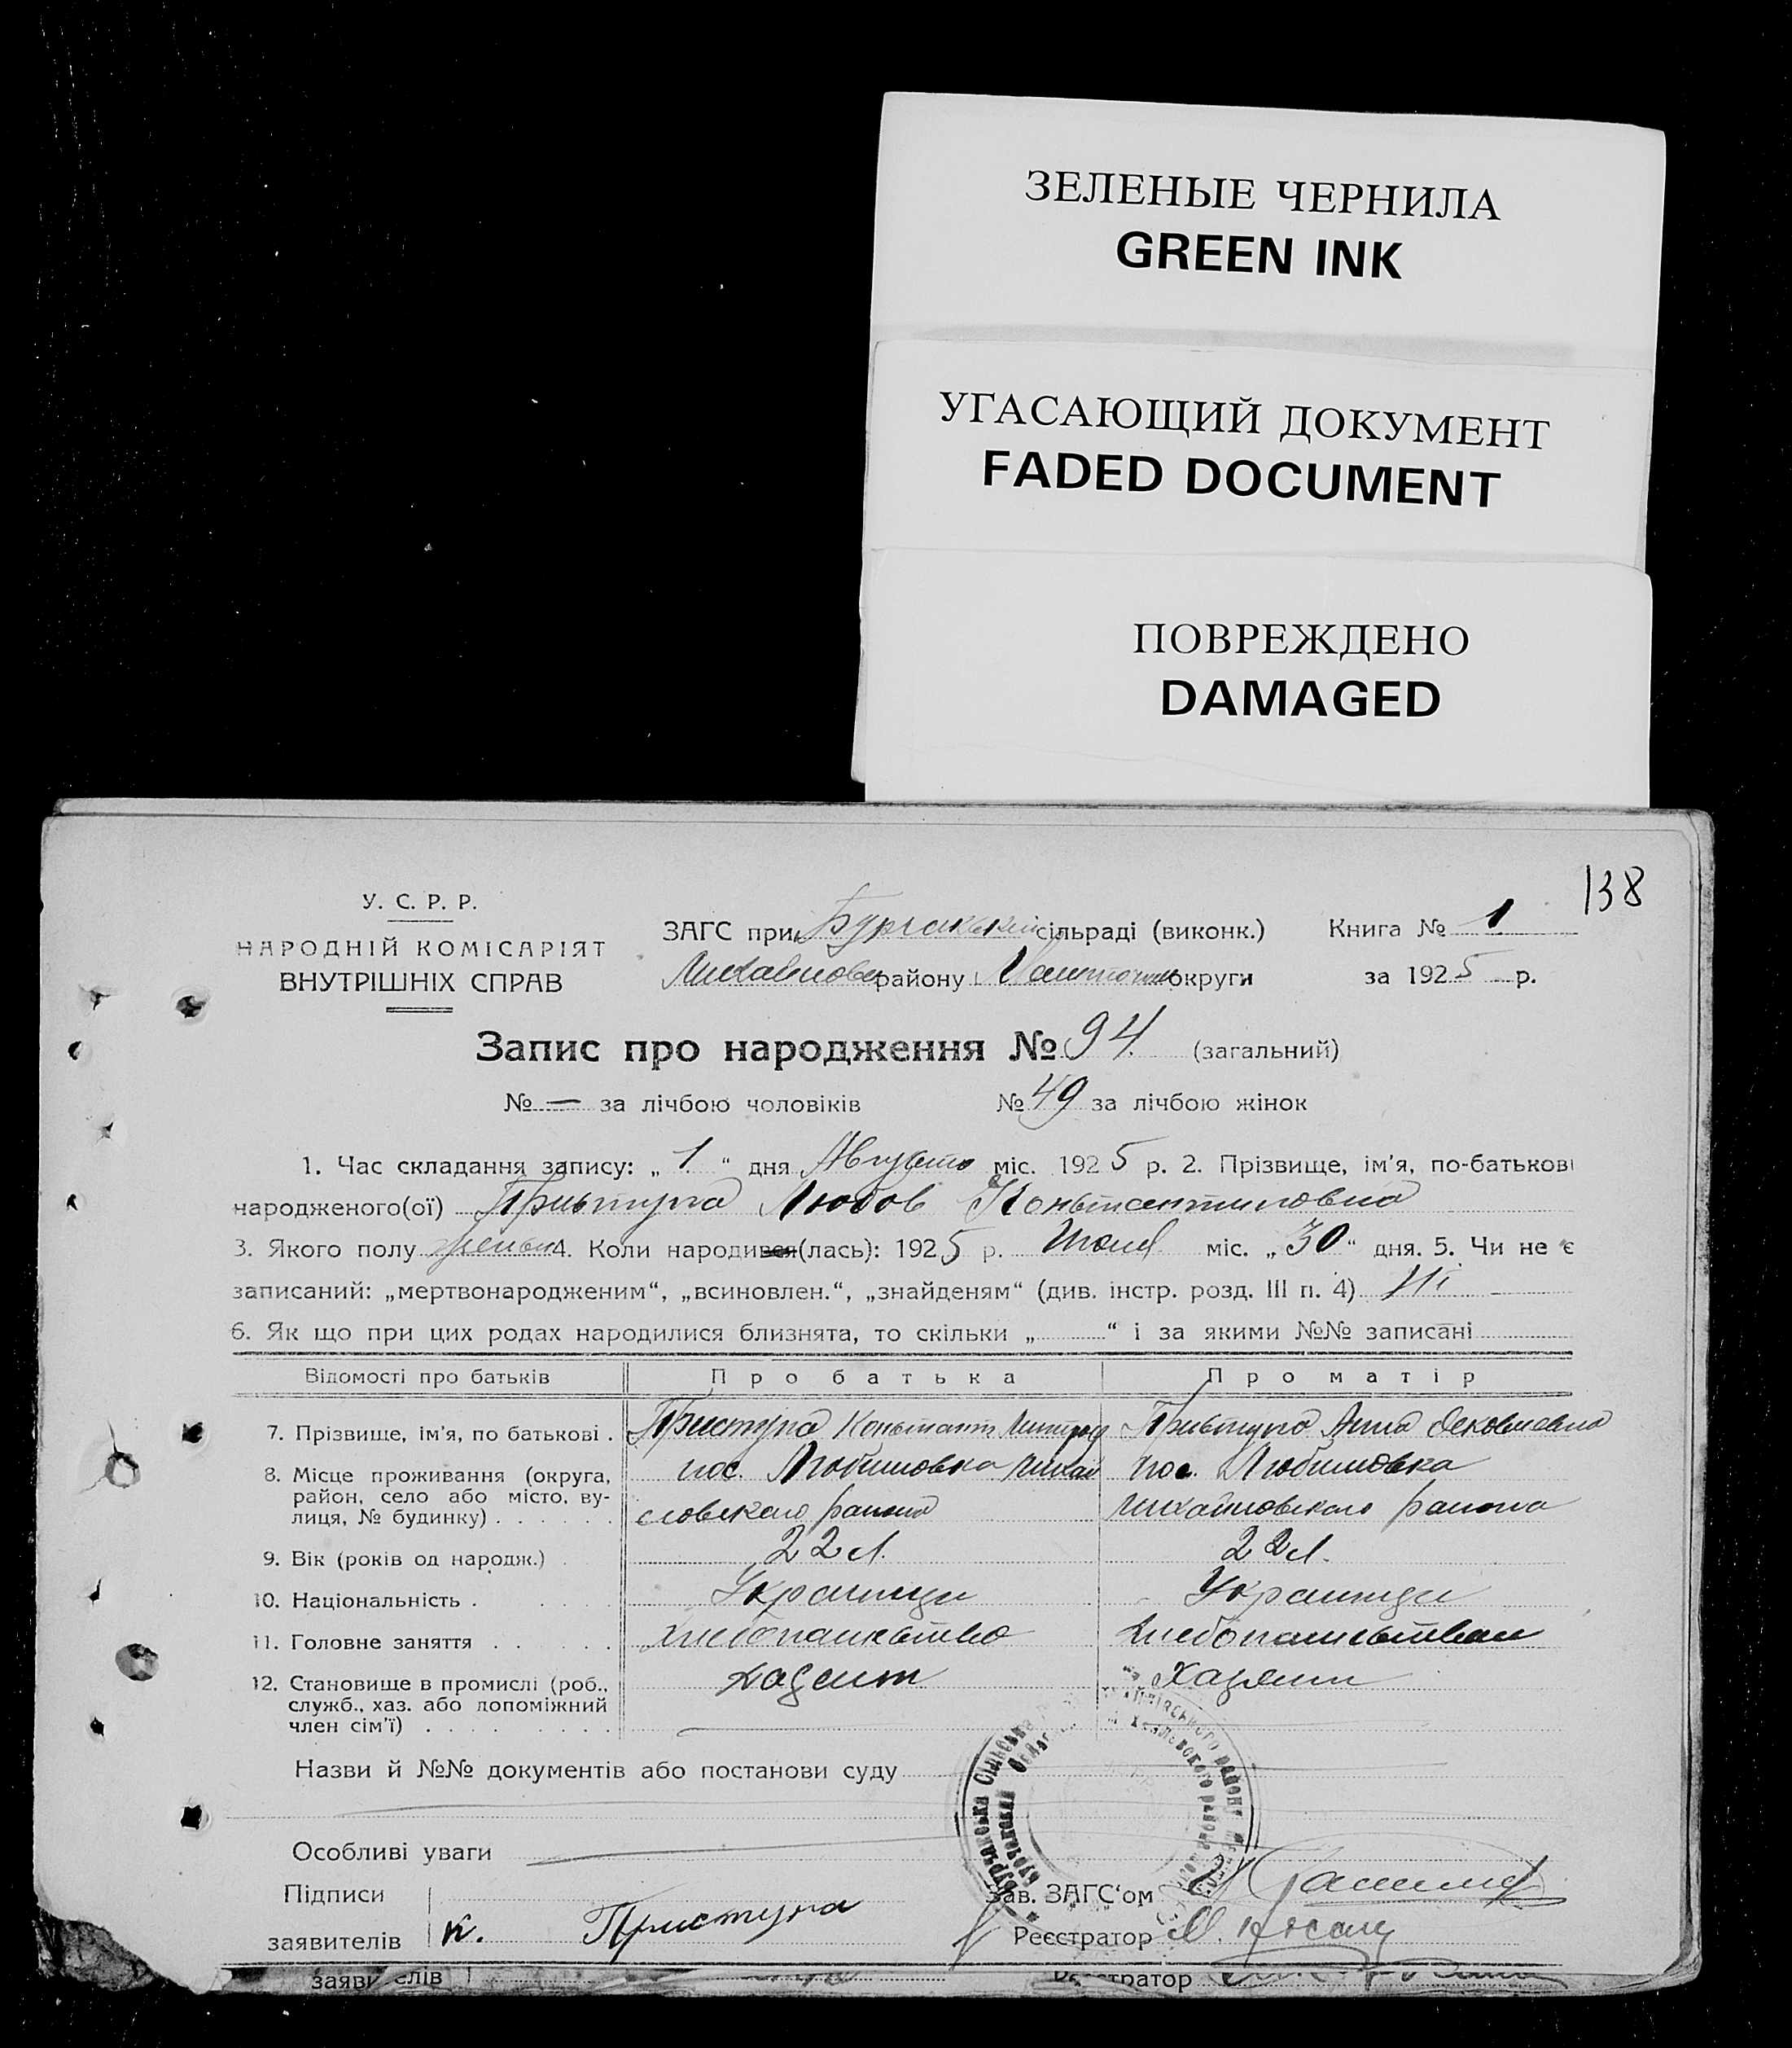 ЗЕЛЕНЫЕ ЧЕРНИЛА
GREEN INK
УГАСАЮЩИЙ ДОКУМЕНТ
FADED DOCUMENT
ПОВРЕЖДЕНО
DAMAGED
138
У. С. Р. Р.
НАРОДНІЙ КОМІСАРІЯТ
ВНУТРІШНІХ СПРАВ
ЗАГС при сільраді (виконк.) Книга № 1
району округи за 1925 р.
Запис про народження № 94 (загальний)
№ — за лічбою чоловіків № 49 за лічбою жінок
1. Час складання запису: „ 1 “ дня Августа міс. 1925 р. 2. Прізвище, ім'я, по-батькові
народженого(ої) Приступа Любов Константиновна
3. Якого полу 4. Коли народився(лась): 1925 р. Июля міс. „ 30 “ дня. 5. Чи не є
записаний: „мертвонародженим“, „всиновлен.“, „знайденям“ (див. інстр. розд. III п. 4) Ні
6. Як що при цих родах народилися близнята, то скільки „ “ і за якими №№ записані
Відомості про батьків Про батька Про матір
7. Прізвище, ім'я, по батькові . Приступа Констант Приступа Анна
8. Місце проживання (округа, пос. Любимовка Михай пос. Любимовка
район, село або місто, ву-
лиця, № будинку) . . . . . . словского района Михайловского района
9. Вік (років од народж.) . 22 л. 22 л.
10. Національність . . . . . Украинци Украинци
11. Головне заняття . . . . . Хлебопашество
12. Становище в промислі (роб., Хазяин Хазяин
служб., хаз. або допоміжний
член сім'ї) . . . . . . . .
Назви й №№ документів або постанови суду
Особливі уваги
Підписи Зав. ЗАГС'ом
заявителів К. Приступа Реєстратор
заявителів Реєстратор